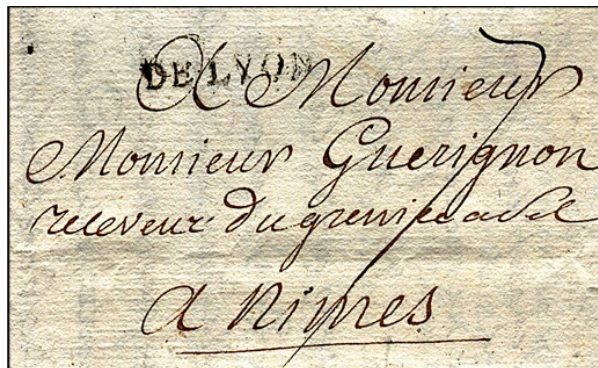 DE LYON
A Monsieur
Monsieur Guerignon
receveur du grenier a sel
a Nimes